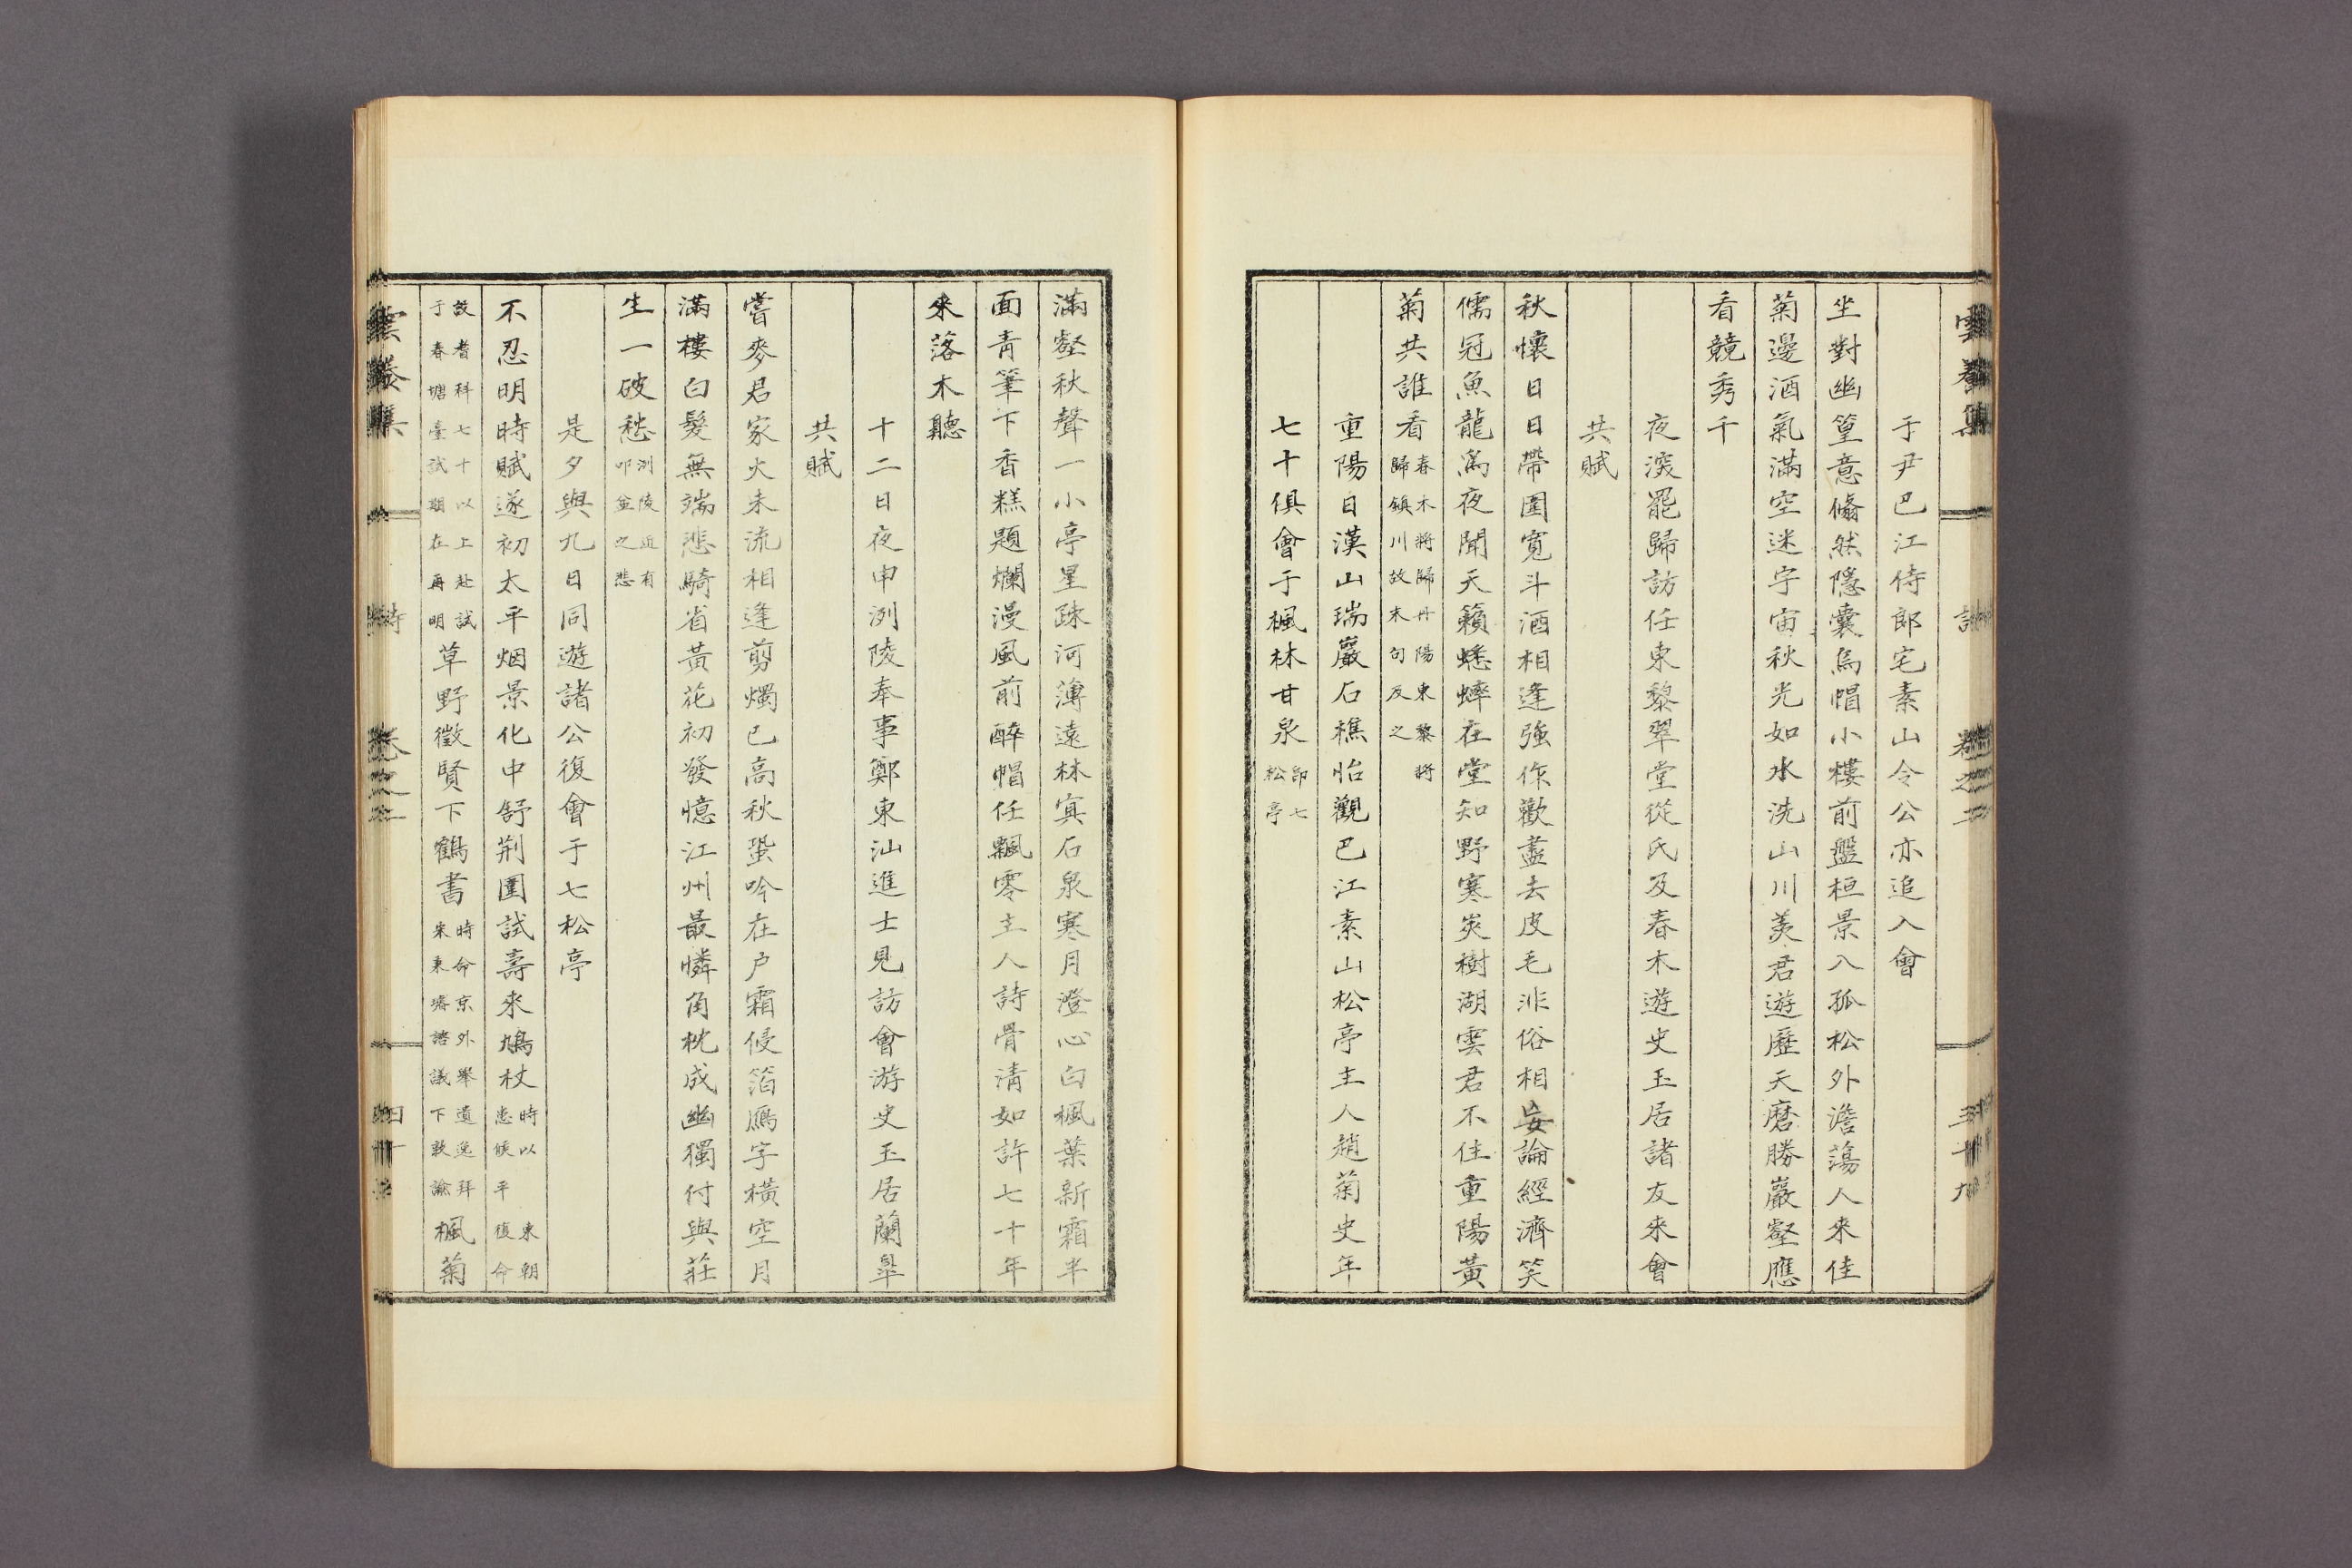 于尹巴江侍郎宅素山令公亦追入會
坐對幽篁意翛然隱囊烏帽小樓前盤桓景入孤松外澹蕩人來佳
菊邊酒氣滿空迷宇宙秋光如水洗山川羨君遊歷天磨勝巖壑應
看競秀千
夜深罷歸訪任東黎翠堂從氏及春木遊史玉居諸友來會
共賦
秋懷日日帶圍寬斗酒相逢強作歡盡去皮毛非俗相妄論經濟笑
儒冠魚龍為夜聞天籟蟋蟀在堂知野寒炭樹湖雲君不住重陽黃
菊共誰看春木將歸丹陽東黎將歸鎮川故末句及之
重陽日漢山瑞巖石樵怡觀巴江素山松亭主人趙菊史年
七十俱會于楓林甘泉即七松亭
滿壑秋聲一小亭星疎河薄遠林冥石泉寒月澄心白楓葉新霜半
面青筆下香糕題爛漫風前醉帽任飄零主人詩骨清如許七十年
來落木聽
十二日夜申洌陵奉事鄭東汕進士見訪會游史玉居蘭皐
共賦
嘗麥君家火未流相逢剪燭已高秋蛩吟在户霜侵箔鴈字橫空月
滿樓白髮無端悲騎省黃花初發憶江州最憐角枕成幽獨付與莊
生一破愁洌陵近有叩盆之悲
是夕與九日同遊諸公復會于七松亭
不忍明時賦遂初太平烟景化中舒荊圍試壽來鳩杖時以東朝患候平復命
故耆科七十以上赴試于春塘臺試期在再明草野徵賢下鶴書時命京外舉遺逸拜宋東濟諮議下敦諭楓菊